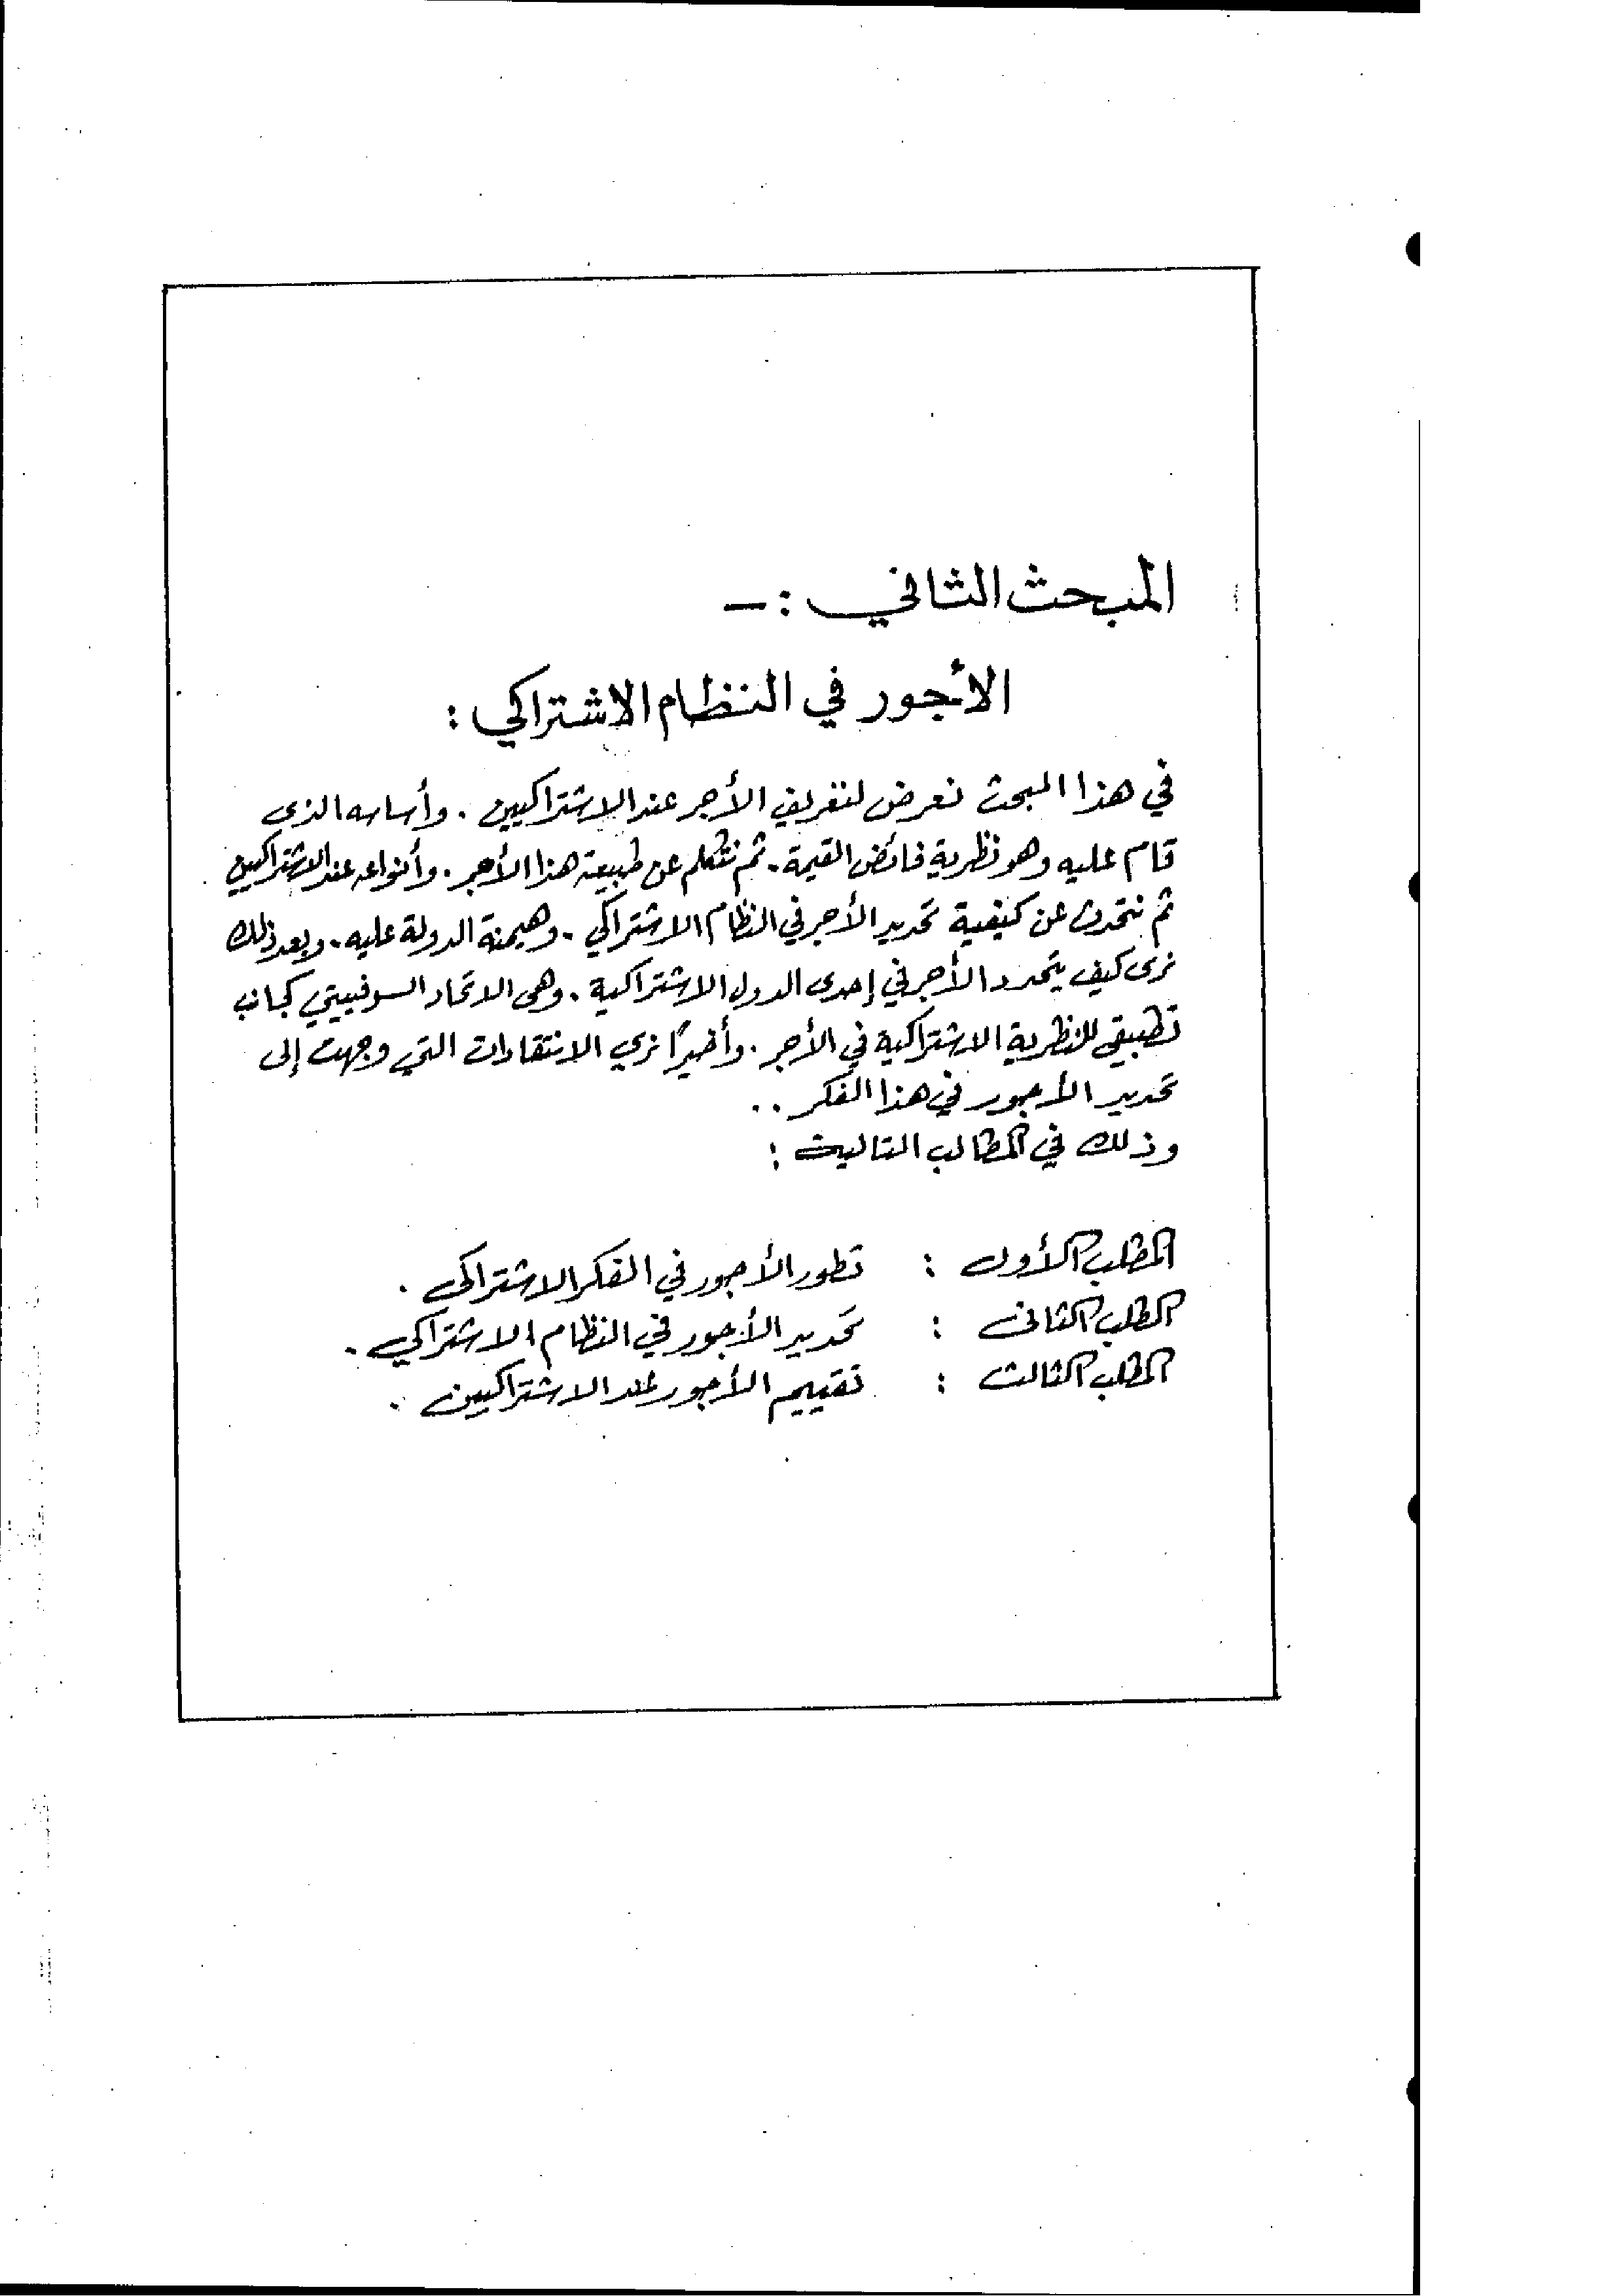 المبحث الثاني : ـ
الأجور في النظام الاشتراكي :
في هذا المبحث نعرض لتعريف الأجر عند الاشتراكيين . وأساسه الذى
قام عليه وهو نظرية فائض القيمة . ثم نتكلم عن طبيعة هذا الأجر . وأنواعه عند الاشتراكيين .
ثم نتحدث عن كيفية تحديد الأجر في النظام الاشتراكي . وهيمنة الدولة عليه . وبعد ذلك
نرى كيف يتحدد الأجر في إحدى الدول الاشتراكية . وهى الاتحاد السوفييتي كجانب
تطبيقي للنظرية الاشتراكية في الأجر . وأخيرًا نري الانتقادات التي وجهت إلى
تحديد الأجور في هذا الفكر ..
وذلك في المطالب التالية :
المطلب الأول : تطور الأجور في الفكر الاشتراكى .
المطلب الثانى : تحديد الأجور في النظام الاشتراكي .
المطلب الثالث : تقييم الأجور عند الاشتراكيين .